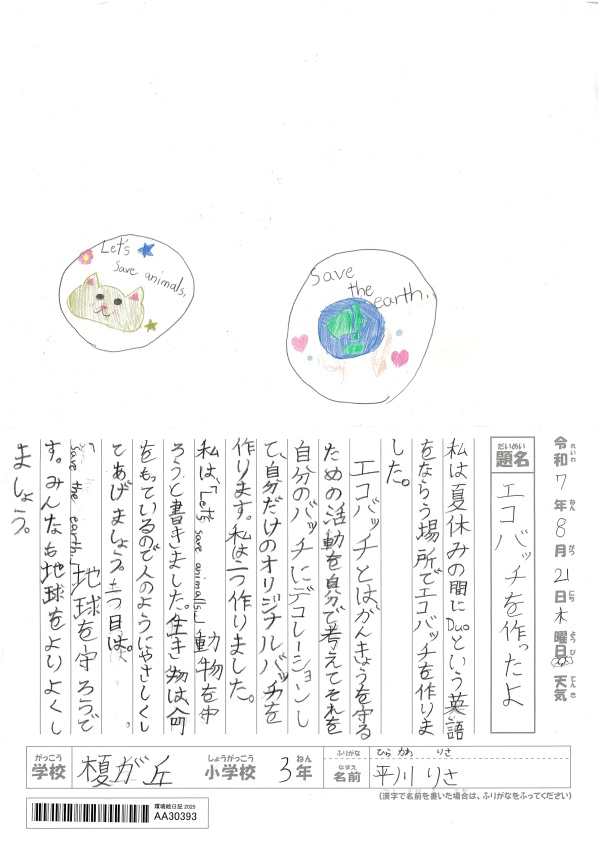 Let's
save animals.
Save
the
earth.
令和7年8月21日木曜日 天気
れいわ ねん がつ にち ようび てんき
だいめい
題名
エコバッチを作ったよ
私は夏休みの間にDuoという英語
をならう場所でエコバッチを作りま
した。
エコバッチとは、かんきょうを守る
ための活動を自分で考えてそれを
自分のバッチにデコレーションし
て、自分だけのオリジナルバッチを
作ります。私は二つ作りました。
私は、「Let's save animals.」動物を守
ろうと書きました。生き物は命
をもっているので人のようにやさしくし
てあげましょう。二つ目は。
「save the earth.」地球を守ろうで
す。みんなも地球をよりよくし
ましょう。
がっこう
学校
榎が丘
しょうがっこう
小学校
3年
ねん
ふりがな
ひらかわ りさ
なまえ
名前
平川 りさ
(漢字で名前を書いた場合は、ふりがなをふってください)
環境絵日記 2025
AA30393